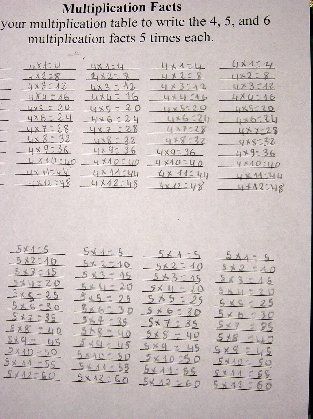 Multiplication Facts
your multiplication table to write the 4, 5, and 6
multiplication facts 5 times each.
4x1=4 4x1=4 4x1=4
4x2=8 4x2=8 4x2=8 4x2=8
4x3=12 4x3=12 4x3=12 4x3=12
4x4=16 4x4=16 4x4=16 4x4=16
4x5=20 4x5=20 4x5=20 4x5=20
4x6=24 4x6=24 4x6=24 4x6=24
4x7=28 4x7=28 4x7=28 4x7=28
4x8=32 4x8=32 4x8=32 4x8=32
4x9=36 4x9=36 4x9=36 4x9=36
4x10=40 4x10=40 4x10=40 4x10=40
4x11=44 4x11=44 4x11=44 4x11=44
4x12=48 4x12=48 4x12=48 4x12=48
5x1=5 5x1=5 5x1=5 5x1=5
5x2=10 5x2=10 5x2=10 5x2=10
5x3=15 5x3=15 5x3=15 5x3=15
5x4=20 5x4=20 5x4=20 5x4=20
5x5=25 5x5=25 5x5=25 5x5=25
5x6=30 5x6=30 5x6=30 5x6=30
5x7=35 5x7=35 5x7=35 5x7=35
5x8=40 5x8=40 5x8=40 5x8=40
5x9=45 5x9=45 5x9=45 5x9=45
5x10=50 5x10=50 5x10=50 5x10=50
5x11=55 5x11=55 5x11=55 5x11=55
5x12=60 5x12=60 5x12=60 5x12=60